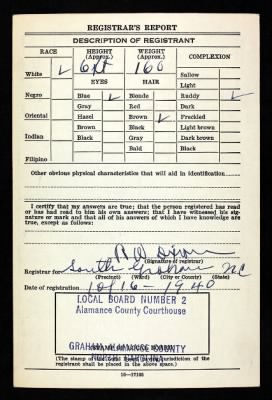 REGISTRAR'S REPORT
DESCRIPTION OF REGISTRANT
RACE HEIGHT (Approx.) WEIGHT (Approx.) COMPLEXION
White 6ft 160 Sallow
EYES HAIR Light
Negro Blue Blonde Ruddy
Gray Red Dark
Oriental Hazel Brown Freckled
Brown Black Light brown
Indian Black Gray Dark brown
Bald Black
Filipino
Other obvious physical characteristics that will aid in identification
I certify that my answers are true; that the person registered has read
or has had read to him his own answers; that I have witnessed his sig-
nature or mark and that all of his answers of which I have knowledge
are true, except as follows:
(Signature of registrar)
Registrar for South Graham NC
(Precinct) (Ward) (City or County) (State)
Date of registration 10/16-1940
LOCAL BOARD NUMBER 2
Alamance County Courthouse
GRAHAM, ALAMANCE COUNTY
NORTH CAROLINA
(The stamp of the jurisdiction of the
registrant shall be placed in the above space.)
16-17105